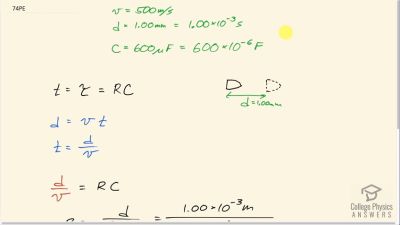 74PE
v = 500 m/s
d = 1.00 mm = 1.00 × 10⁻³ s
C = 600 μF = 600 × 10⁻⁶ F
t = τ = RC
d = 1.00mm
d = v t
t = d/v
d/v = RC
d 1.00 × 10⁻³ m
College Physics
ANSWERS